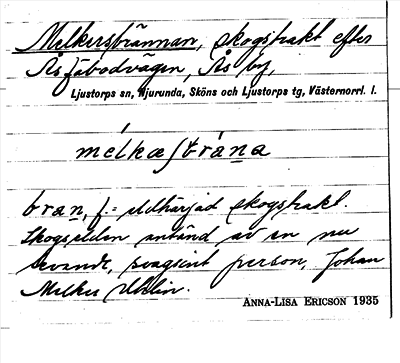 Melkersbrännan, skogstrakt efter
Ås fäbodvägen, Ås by,
Ljustorps sn, Njurunda, Sköns och Ljustorps tg, Västernorrl. l.
melkæʃbrana
bran, f. = eldhärjad skogstrakt.
Skogselden antänd av en nu
levande, svagsint person, Johan
Melker Uhlin.
ANNA-LISA ERICSON 1935